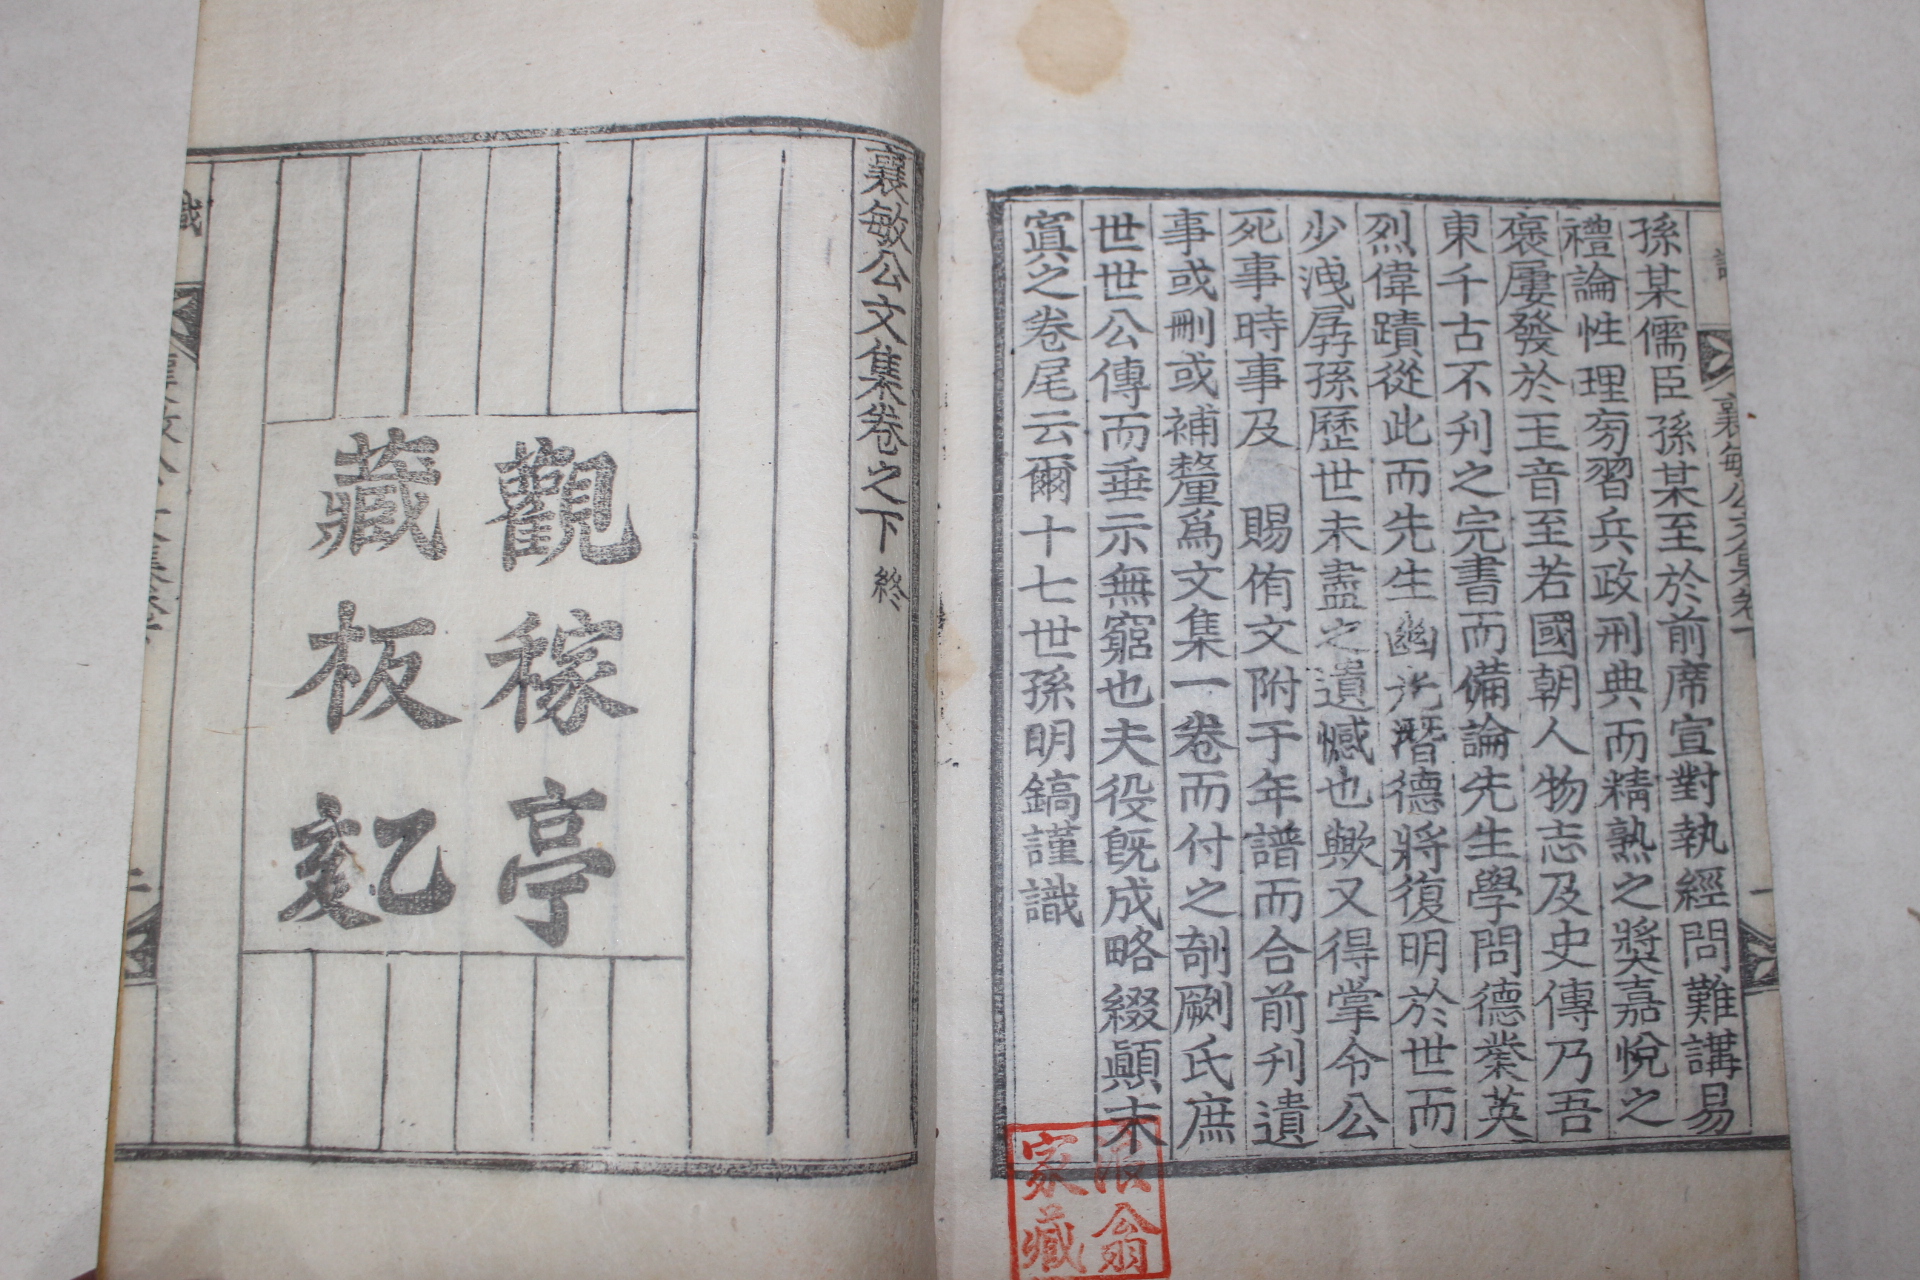 孫某儒臣孫某至於前席宣對執經問難講易
禮論性理旁習兵政刑典而精熟之奬嘉悅之
褒屢發於玉音至若國朝人物志及史傳乃吾
東千古不刋之完書而備論先生學問德業英
烈偉蹟從此而先生幽光潛德將復明於世而
少洩孱孫歷世未盡之遺憾也歟又得掌令公
死事時事及 賜侑文附于年譜而合前刋遺
事或刪或補釐爲文集一卷而付之剞劂氏庶
世世公傳而垂示無窮也夫役旣成略綴顚末
寘之卷尾云爾十七世孫明鎬謹識
襄敏公文集卷之下 終
觀稼亭
藏板
乙亥
記
翁
家藏
襄敏公文集卷下
識